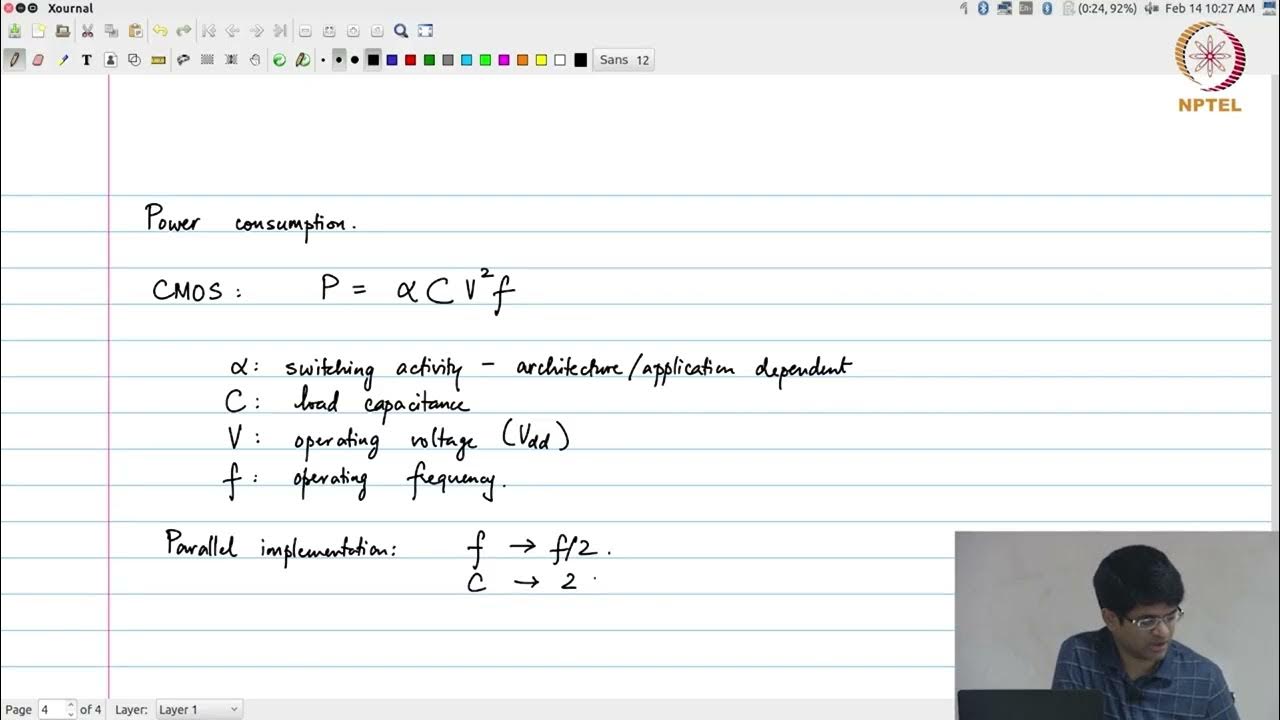 Xournal
(0:24, 92%) Feb 14 10:27 AM
En
T
Sans 12
NPTEL
Power consumption.
CMOS : P = α C V² f
α : switching activity – architecture/application dependent
C : load capacitance
V : operating voltage (Vdd)
f : operating frequency.
Parallel implementation: f → f/2 .
C → 2
Page 4 of 4 Layer: Layer 1